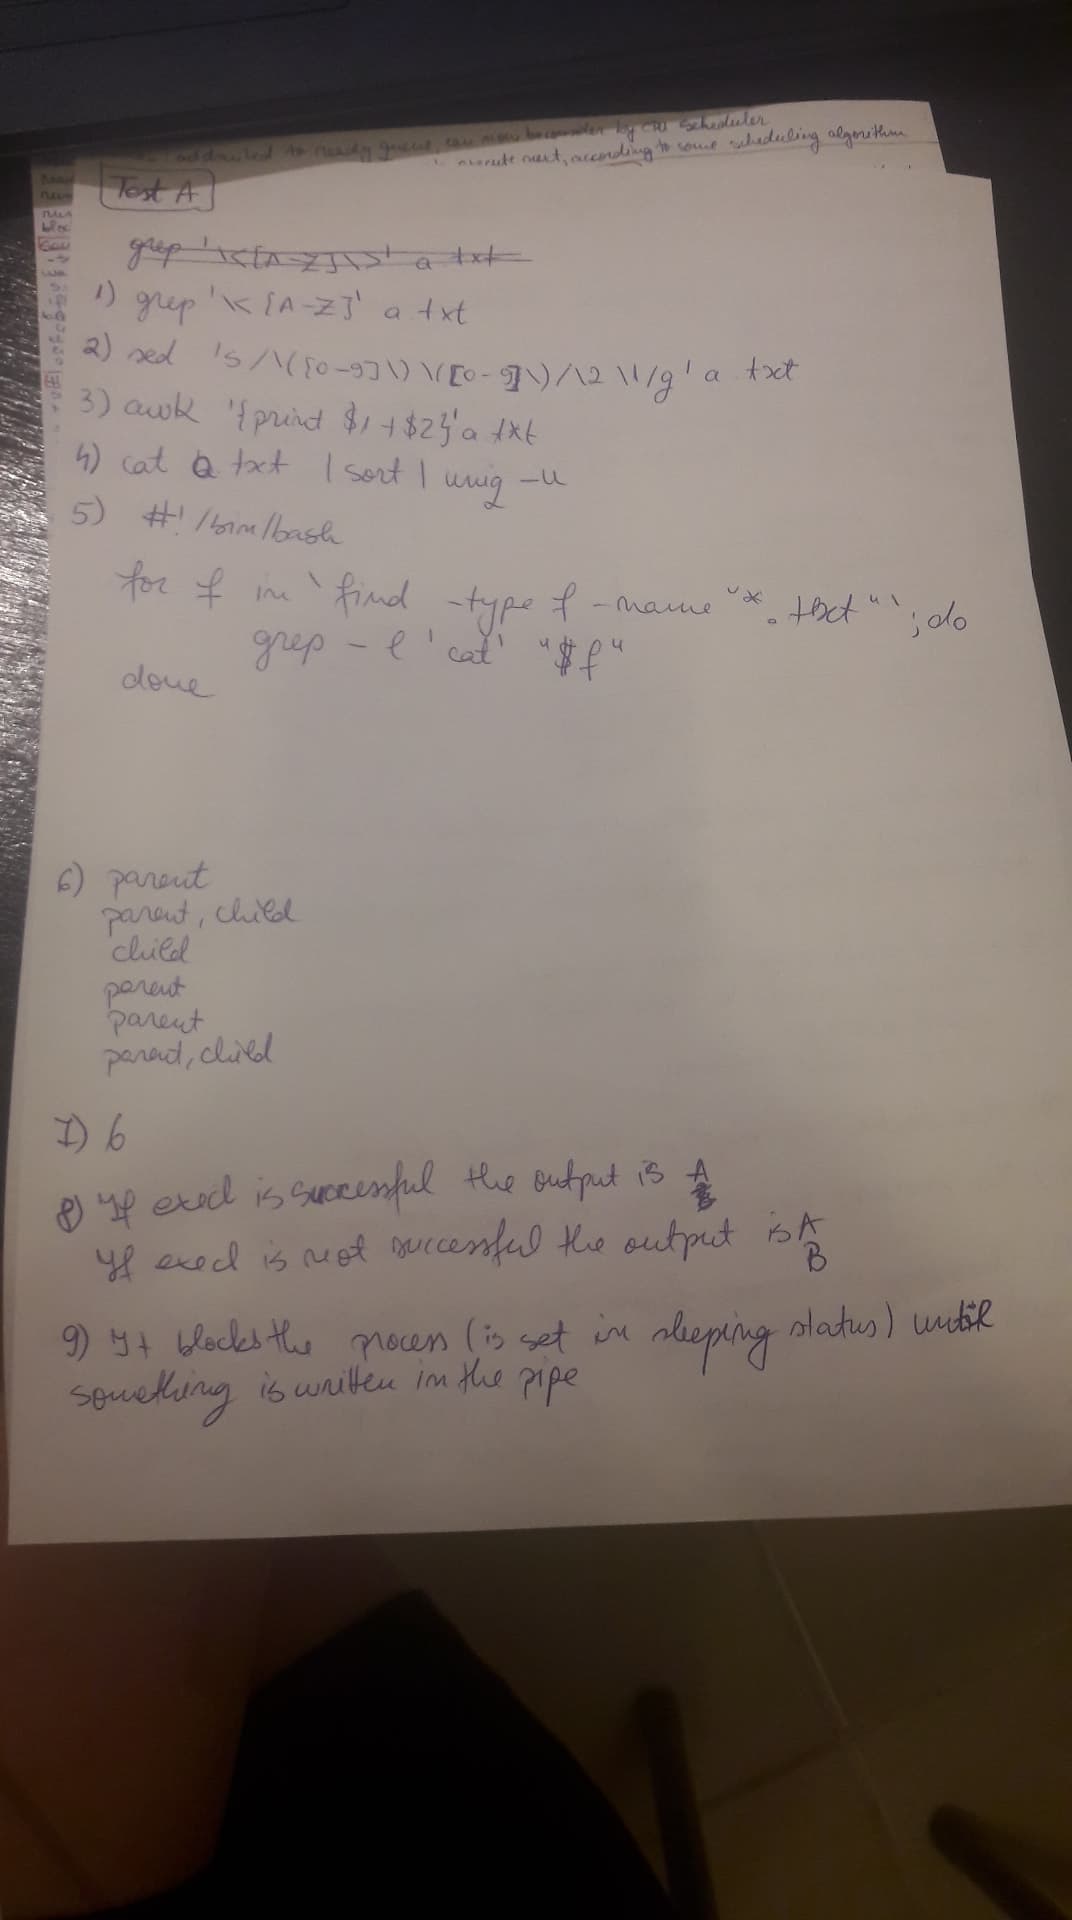 to ready queue, can now be consider by CPU scheduler
execute next, according to some scheduling algorithm
Test A
grep '\<[A-Z]\>' a txt
1) grep '\<[A-Z]' a txt
2) sed 's/\([0-9]\)\([0-9]\)/\2\1/g' a txt
3) awk '{print $1+$2}' a txt
4) cat a txt | sort | uniq -u
5) #!/bin/bash
for f in `find -type f -name "*.txt"`; do
grep -l 'cat' "$f"
done
6) parent
parent, child
child
parent
parent
parent, child
7) 6
8) If execl is successful the output is A
If execl is not successful the output is A
B
9) It blocks the process (is set in sleeping status) until
something is written in the pipe